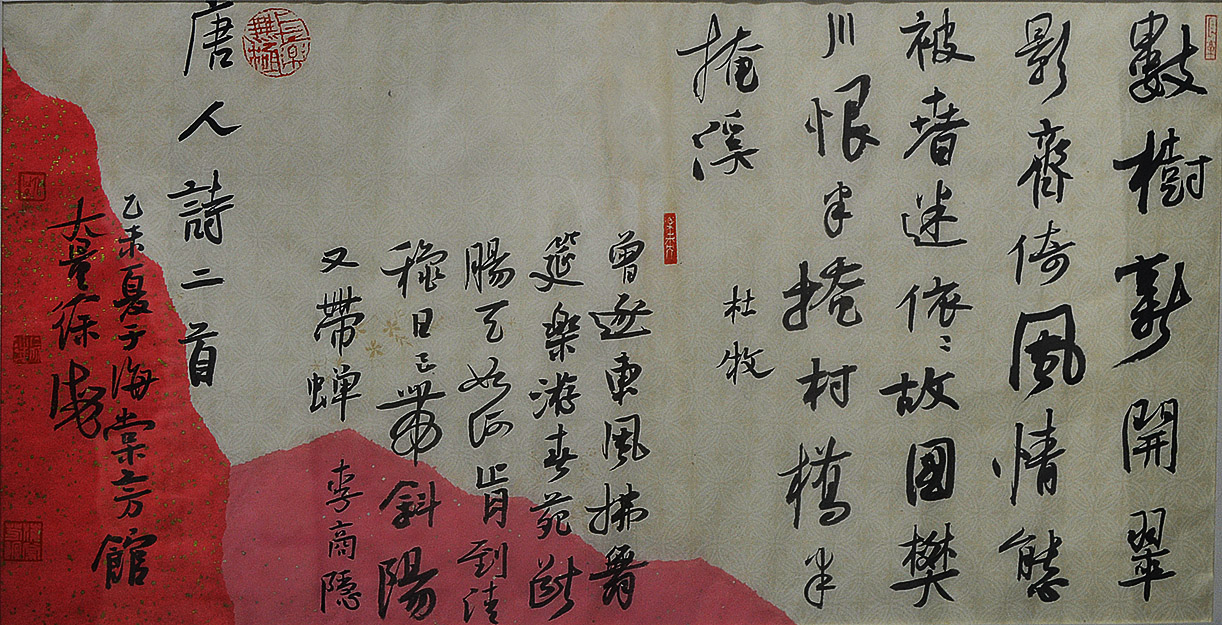 數樹新開翠
影齊倚風情態
被春迷依〻故國樊
川恨半掩村橋半
掩溪
杜牧
曾逐東風拂舞
筵樂游春苑斷
腸天如何肯到清
穐日已帶斜陽
又帶蟬 李商隱
唐人詩二首
長樂無極
乙未夏于海棠芳館
大量徐